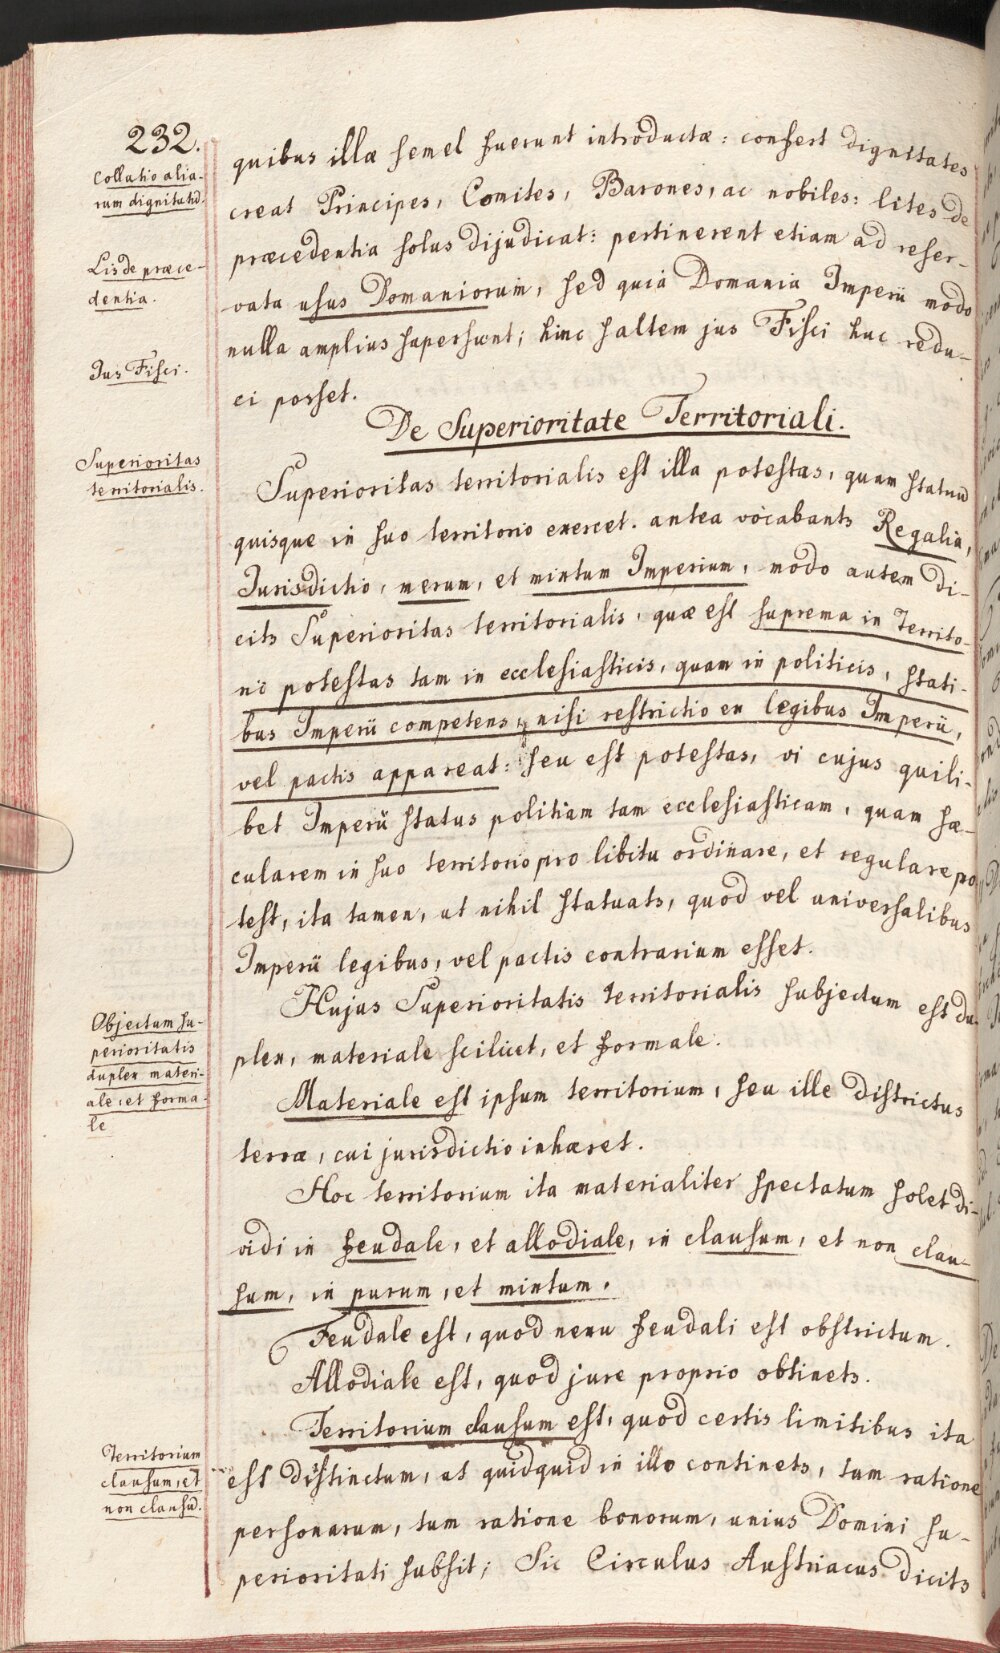 232.
Collatio alia-
rum dignitatū.
Lis de præce-
dentia.
Jus Fisci.
Superioritas
territorialis.
Objectum su-
perioritatis
duplex materi-
ale, et forma-
le
Territorium
clausum, et
non clausū.
quibus illæ semel fuerunt introductæ: confert dignitates
creat Principes, Comites, Barones, ac nobiles: lites de
præcedentia solus dijudicat: pertinerent etiam ad reser-
vata usus Domaniorum, sed quia Domania Imperii modo
nulla amplius supersunt; hinc saltem jus Fisci huc redu-
ci posset.
De Superioritate Territoriali.
Superioritas territorialis est illa potestas, quam statuū
quisque in suo territorio exercet. antea vocabants Regalia,
Jurisdictio, merum, et mixtum Imperium, modo autem di-
cits Superioritas territorialis, quæ est suprema in Territo-
rio potestas tam in ecclesiasticis, quam in politicis, stati-
bus Imperii competens, nisi restrictio ex legibus Imperii,
vel pactis appareat: seu est potestas, vi cujus quili-
bet Imperii status politiam tam ecclesiasticam, quam sæ-
cularem in suo territorio pro libitu ordinare, et regulare po
test, ita tamen, ut nihil statuats, quod vel universalibus
Imperii legibus, vel pactis contrarium esset.
Hujus Superioritatis territorialis subjectum est du
plex, materiale scilicet, et formale.
Materiale est ipsum territorium, seu ille districtus
terræ, cui jurisdictio inhæret.
Hoc territorium ita materialiter spectatum solet di-
vidi in feudale, et allodiale, in clausum, et non clau-
sum, in purum, et mixtum.
Feudale est, quod nexu feudali est obstrictum.
Allodiale est, quod jure proprio obtinets.
Territorium clausum est, quod certis limitibus ita
est distinctum, ut quidquid in illo continets, tum ratione
personarum, tum ratione bonorum, unius Domini su-
perioritati subsit; Sic Circulus Austriacus dicits